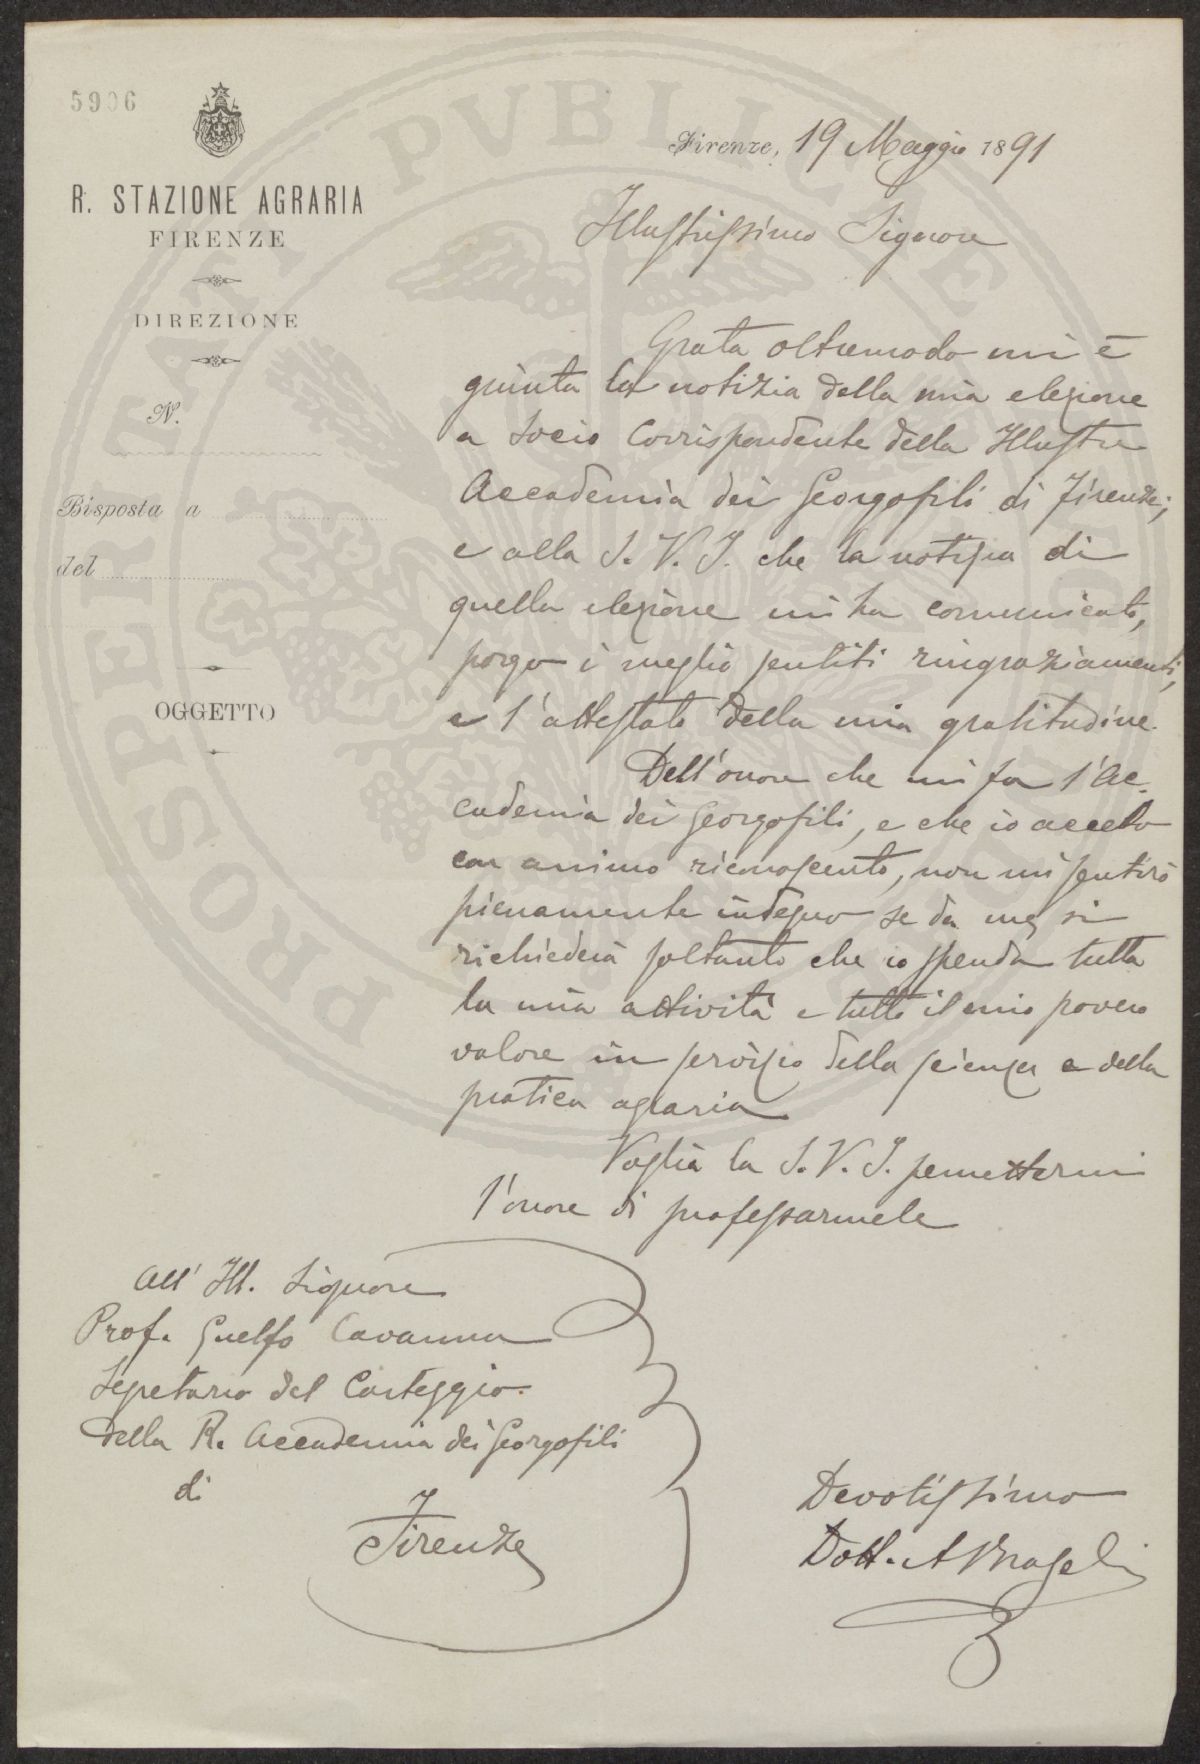 5906
R. STAZIONE AGRARIA
FIRENZE
DIREZIONE
N.
Risposta a
del
OGGETTO
Firenze, 19 Maggio 1891
Illustrissimo Signore
Grata oltremodo mi è
giunta la notizia della mia elezione
a Socio Corrispondente della Illustre
Accademia dei Georgofili di Firenze;
e alla S. V. I. che la notizia di
quella elezione mi ha comunicato,
porgo i meglio sentiti ringraziamenti,
e l'attestato della mia gratitudine.
Dell'onore che mi fa l'Ac-
cademia dei Georgofili, e che io accetto
con animo riconoscente, non mi sentirò
pienamente indegno se da me si
richiederà soltanto che io spenda tutta
la mia attività e tutto il mio povero
valore in servizio della scienza e della
pratica agraria
Voglia la S. V. I. permettermi
l'onore di professarmele
All' Ill. Signore
Prof. Guelfo Cavanna
Segretario del Carteggio
della R. Accademia dei Georgofili
di
Firenze
Devotissimo
Dott. A
PROSPERITATI PVBLICAE